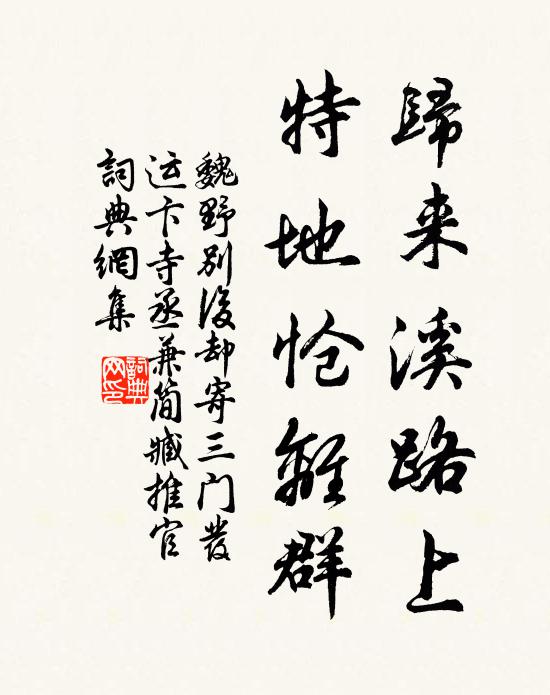 歸来溪路上
特地怆離群
魏野別後却寄三门發
运卞寺丞兼簡臧推官
詞典網集
詞典網印